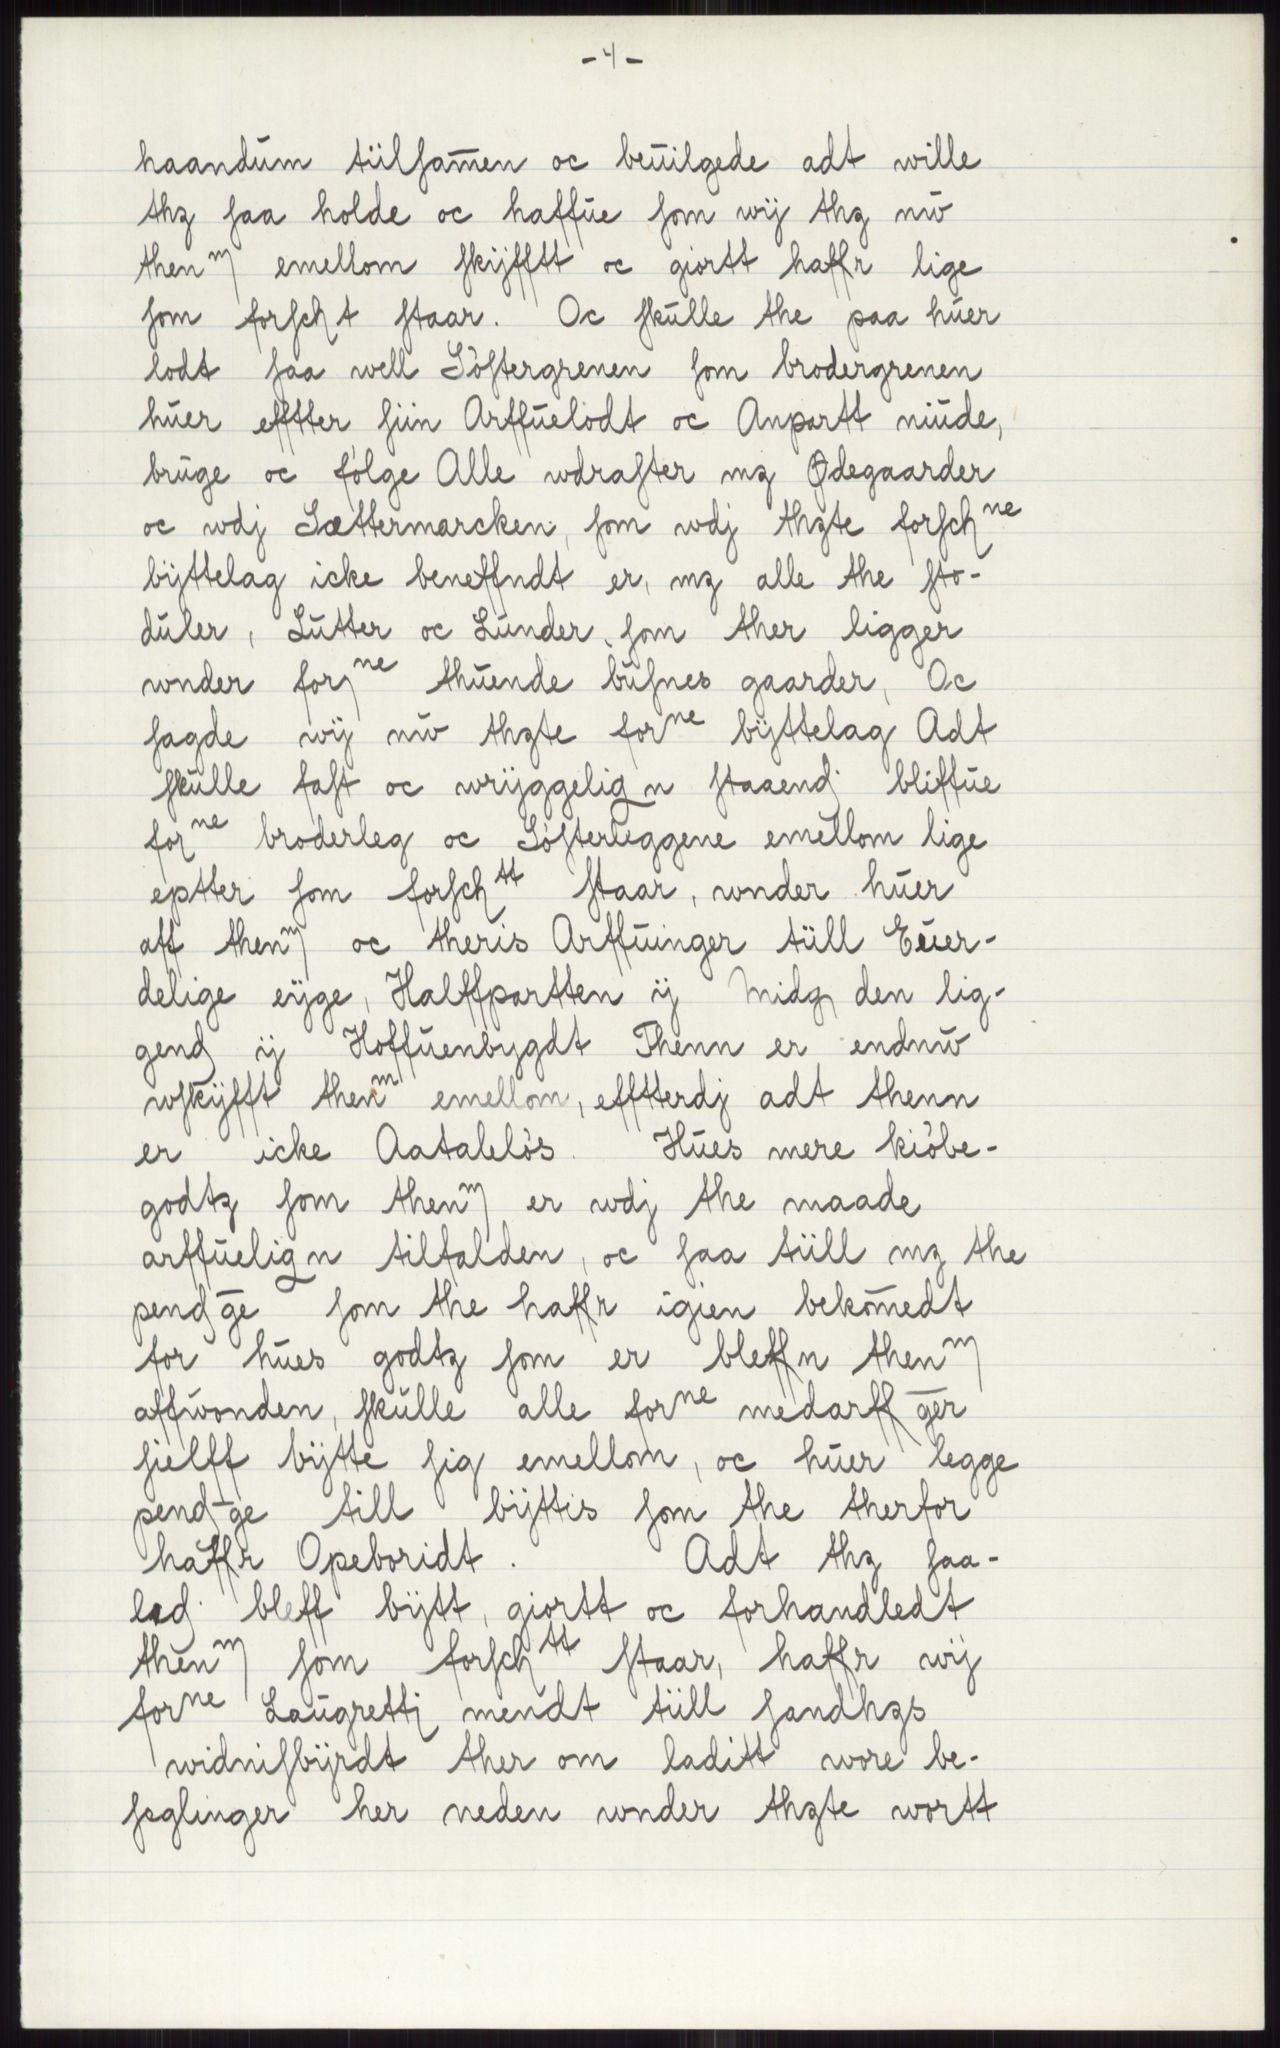 -4-
haandum tiilsam̄en oc beuilgede adt wille
thz saa holde oc haffue som wij thz nw
thenm emellom skijfftt oc giortt haffr lige
som forscht staar. Oc skulle the paa huer
lodt saa well Söstergrenen som brodergrenen
huer efftter siin Arffuelodt oc Anpartt niude,
bruge oc følge Alle wdraster mz Ødegaarder
oc wdj Sættermarcken, som wdj thzte forschne
bÿttelag icke beneffndt er, mz alle the sto-
duler, Lutter oc Lunder som ther ligger
wnder forne thuende busnes gaarder, Oc
sagde wij nw thzte forne bÿttelag Adt
skulle fast oc wrÿggelign staaendj bliffue
forne broderleg oc Sösterleggene emellom lige
eptter som forschtt staar, wnder huer
aff thenm oc theris Arffuinger tiill Euer-
delige eÿge, Halffpartten ij Midg den lig-
gend ij Hoffuenbygdt Thenn er endnw
wskÿfft thenm emellom, efftterdj adt thenn
er icke Aatalelös. Hues mere kiöbe-
godtz som thenm er wdj the maade
arffuelign tilfalden, oc saa tiill mz the
pendḡe som the haffr igien bekom̄edt
for hues godtz som er bleffn thenm
affwonden, skulle alle forne medarffḡer
sielff bÿtte sig emellom, oc huer legge
pend-ge till bÿttis som the therfor
haffr Opeboridt. Adt thz saa-
led bleff bÿtt, giortt oc forhandledt
thenm som forschtt staar, haffr wij
forne Laugrettj mendt tiill sandhzs
widnisbÿrdt ther om laditt wore be-
seglinger her neden wnder thzte wortt